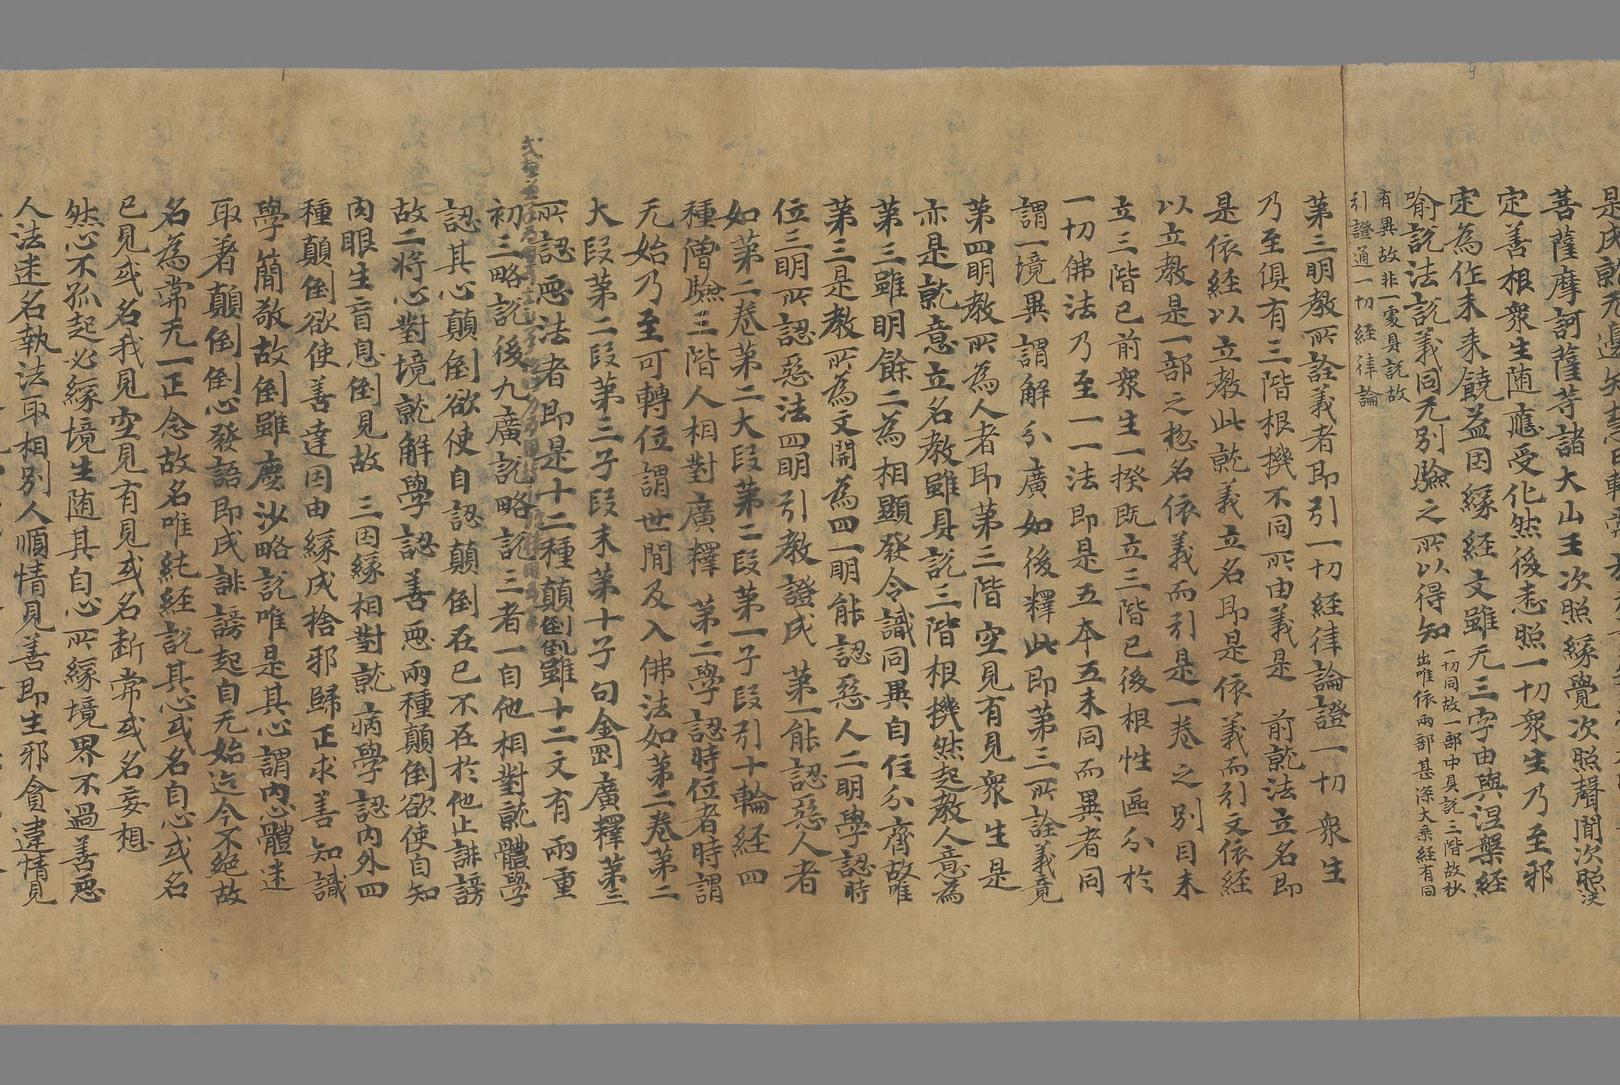 菩薩摩訶薩等諸大山王次照緣覺次照聲聞次照決
定善根眾生随應受化然後悉照一切眾生乃至邪
定為作未来饒益因緣經文雖无三字由與涅槃經
喻說法說義同无別驗之所以得知一切同故一部中具說三階故抄
出唯依兩部甚深大乘經有同
有異故非一處身説故
引證通一切經律論
第三明教所詮義者即引一切經律論證一切眾生
乃至俱有三階根機不同所由義是 前就法立名即
是依經以立教此就義立名即是依義而引文依經
以立教是一部之惣名依義而引是一卷之別目未
立三階已前眾生一揆既立三階已後根性區分於
一切佛法乃至一一法即是五本五末同而異者同
謂一境異謂解分廣如後釋此即第三所詮義竟
第四明教所為人者即第三階空見有見眾生是
亦是就意立名教雖具說三階根機然起教人意為
第三雖明餘二為相顯發令識同異自住分齊故唯
第三是教所為文開為四一明能認惡人二明學認時
位三明所認惡法四明引教證成 第一能認惡人者
如第二卷第二大段第二段第一子段引十輪經四
種僧驗三階人相對廣釋 第二學認時位者時謂
无始乃至可轉位謂世間及入佛法如第二卷第二
大段第二段第三子段末第十子句金罰廣釋第三
所認惡法者即是十二種顛倒雖十二文有兩重
初三略說後九廣說略說三者一自他相對就體學
認其心顛倒欲使自認顛倒在己不在於他止誹謗
故二將心對境就解學認善惡兩種顛倒欲使自知
肉眼生盲息倒見故 三因緣相對就病學認內外四
種顛倒欲使善達因由緣成捨邪歸正求善知識
學簡敬故倒雖塵沙略說唯是其心謂內心體迷
取著顛倒倒心發語即成誹謗起自无始迄今不絕故
名為常无一正念故名唯純經說其心或名自心或名
己見或名我見空見有見或名斷常或名妄想
然心不孤起必緣境生随其自心所緣境界不過善惡
人法迷名執法取相別人順情見善即生邪貪違情見